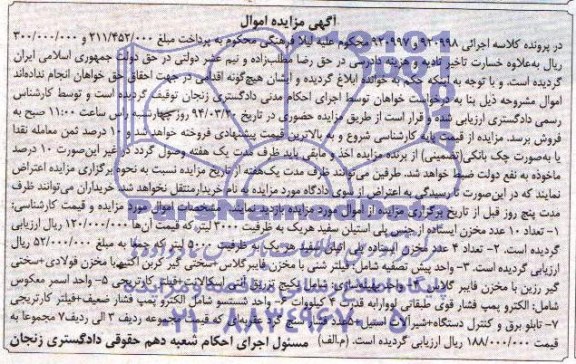 آگهی مزایده اموال
در پرونده کلاسه اجرائی ۹۲۰۹۹۸ و ۹۲۰۹۹۷ محکوم علیه لیلا فرهنگی محکوم به پرداخت مبلغ ۲۱۱/۴۵۲/۰۰۰ و ۳۰۰/۰۰۰/۰۰۰
ریال به‌علاوه خسارت تاخیر تادیه و هزینه دادرسی در حق رضا مطلب‌زاده و نیم عشر دولتی در حق دولت جمهوری اسلامی ایران
گردیده است. و با توجه به اینکه حکم به خوانده ابلاغ گردیده و ایشان هیچ‌گونه اقدامی در جهت احقاق حق خواهان انجام نداده‌اند
اموال مشروحه ذیل بنا به درخواست خواهان توسط اجرای احکام مدنی دادگستری زنجان توقیف گردیده است و توسط کارشناس
رسمی دادگستری ارزیابی شده و قرار است از طریق مزایده حضوری در تاریخ ۹۴/۰۳/۲۰ روز چهارشنبه راس ساعت ۱۱:۰۰ صبح به
فروش برسد. مزایده از قیمت پایه کارشناسی شروع و به بالاترین قیمت پیشنهادی فروخته خواهد شد و ۱۰ درصد ثمن معامله نقدا
یا به‌صورت چک بانکی(تضمینی) از برنده مزایده اخذ و مابقی باید ظرف مدت یک هفته وصول گردد در غیر این‌صورت ۱۰ درصد
ماخوذه به نفع دولت ضبط خواهد شد. طرفین می‌توانند ظرف مدت یک‌هفته از تاریخ مزایده نسبت به نحوه برگزاری مزایده اعتراض
نمایند که در این‌صورت تا رسیدگی به اعتراض از سوی دادگاه مورد مزایده به نام خریدار منتقل نخواهد شد. خریداران می‌توانند ظرف
مدت پنج روز قبل از تاریخ برگزاری مزایده از اموال مورد مزایده بازدید نمایند. مشخصات اموال مورد مزایده و قیمت کارشناسی:
۱- تعداد ۱۰ عدد مخزن ایستاده از جنس پلی اتیلن سفید هریک به ظرفیت ۳۰۰۰ لیتر که قیمت آن‌ها ۱۲۰/۰۰۰/۰۰۰ ریال ارزیابی
گردیده است. ۲- تعداد ۴ عدد مخزن ایستاده پلی اتیلن سفید هریک به ظرفیت ۵۰۰۰ لیتر که جمعا به مبلغ ۵۲/۰۰۰/۰۰۰ ریال
ارزیابی گردیده است. ۳- واحد پیش تصفیه شامل: فیلتر شنی با مخزن فایبرگلاس+سختی گیر کربن اکتیو با مخزن فولادی+سختی
گیر رزین با مخزن فایبر گلاس ۴- واحد شامل: پکیج تزریق آنتی اسکالانت+فیلتر کارتریجی ۵- واحد اسمز معکوس
شامل: الکترو پمپ فشار قوی طبقاتی لووارابه قدرت ۴ کیلووات ۶- واحد شستسو شامل الکترو پمپ فشار ضعیف+فیلتر کارتریجی
۷- تابلو برق و کنترل دستگاه+شیرآلات استیل که قیمت مجموعه ردیف ۳ الی ردیف ۷ مجموعا به
قیمت ۱۸۸/۰۰۰/۰۰۰ ریال ارزیابی گردیده است. (م.الف) مسئول اجرای احکام شعبه دهم حقوقی دادگستری زنجان
ParsNamadData
۰۲۱-۸۸۳۴۹۶۷۰-۵